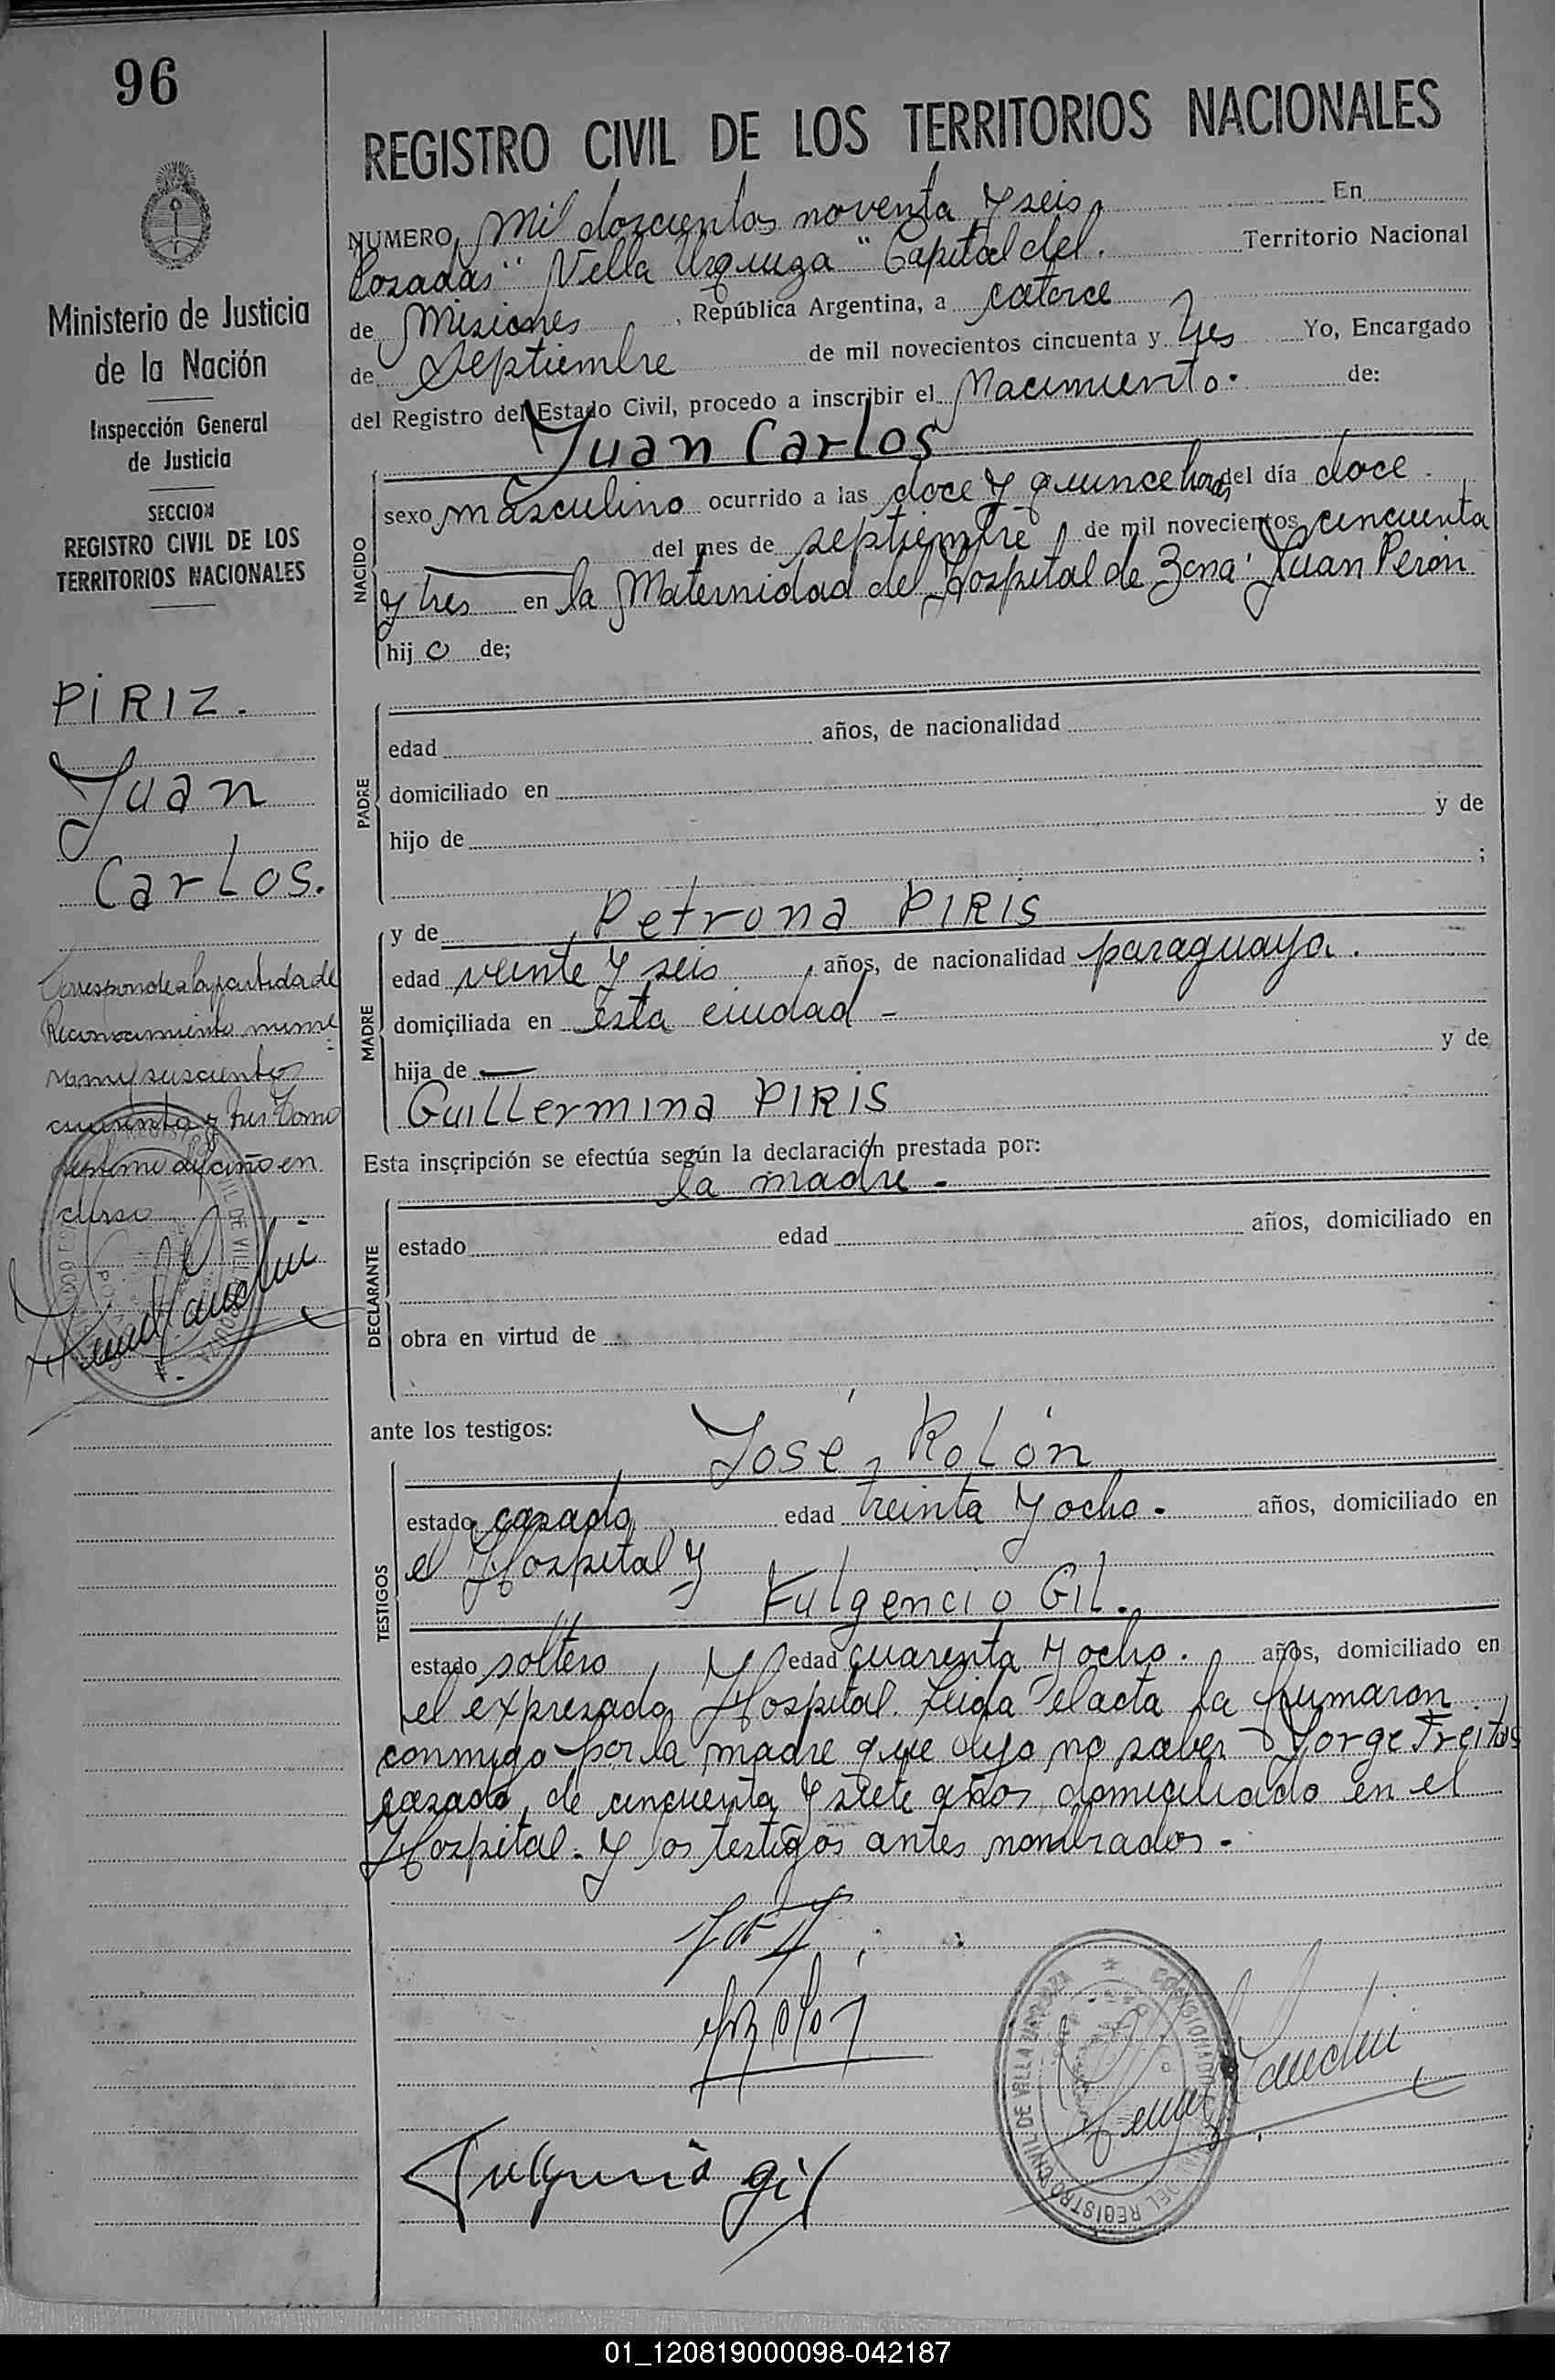 96
REGISTRO CIVIL DE LOS TERRITORIOS NACIONALES
Ministerio de Justicia
de la Nación
Inspección General
de Justicia
SECCION
REGISTRO CIVIL DE LOS
TERRITORIOS NACIONALES
PIRIZ.
Juan
Carlos.
Corresponde a la partida de
Reconocimiento núme
ro mil seiscientos
cuarenta y tres Tomo
séptimo del año en
curso
NUMERO Mil doscientos noventa y seis. En
Posadas "Villa Urquiza" Capital del. Territorio Nacional
de Misiones, República Argentina, a catorce
de Septiembre de mil novecientos cincuenta y tres Yo, Encargado
del Registro del Estado Civil, procedo a inscribir el Nacimiento. de:
Juan Carlos
NACIDO
sexo masculino ocurrido a las doce y quince horas del día doce
del mes de septiembre de mil novecientos cincuenta
y tres en la Maternidad del Hospital de Zona "Juan Perón
hij o de;
PADRE
edad años, de nacionalidad
domiciliado en
hijo de y de
;
MADRE
y de Petrona PIRIS
edad veinte y seis, años, de nacionalidad paraguaya.
domiciliada en esta ciudad -
hija de — y de
Guillermina PIRIS
Esta inscripción se efectúa según la declaración prestada por:
la madre -
DECLARANTE
estado edad años, domiciliado en
obra en virtud de
ante los testigos:
José Rolón
TESTIGOS
estado casado, edad treinta y ocho - años, domiciliado en
el Hospital y
Fulgencio Gil.
estado soltero, edad cuarenta y ocho. años, domiciliado en
el expresado Hospital. Leida el acta la firmaron
conmigo por la madre que dijo no saber Jorge Freitas
casado, de cincuenta y siete años, domiciliado en el
Hospital. Y los testigos antes nombrados -
Fulgencio gil
01_120819000098-042187